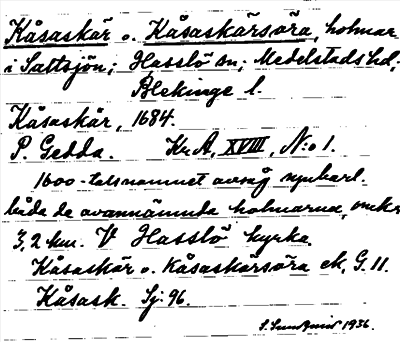 Kåsaskär o. Kåsaskärsöra, holmar
i Saltsjön; Hasslö sn; Medelstads hd;
Blekinge l.
Kåsaskär, 1684.
P. Gedda. Kr. A, XVIII, N:o 1.
1600-talsnamnet avsåg synbarl.
båda de ovannämnda holmarna, omkr.
3,2 km. V Hasslö kyrka.
Kåsaskär o. Kåsaskärsöra ek, G. 11.
Kåsask. Sj. 96.
S. Sundquist 1936.